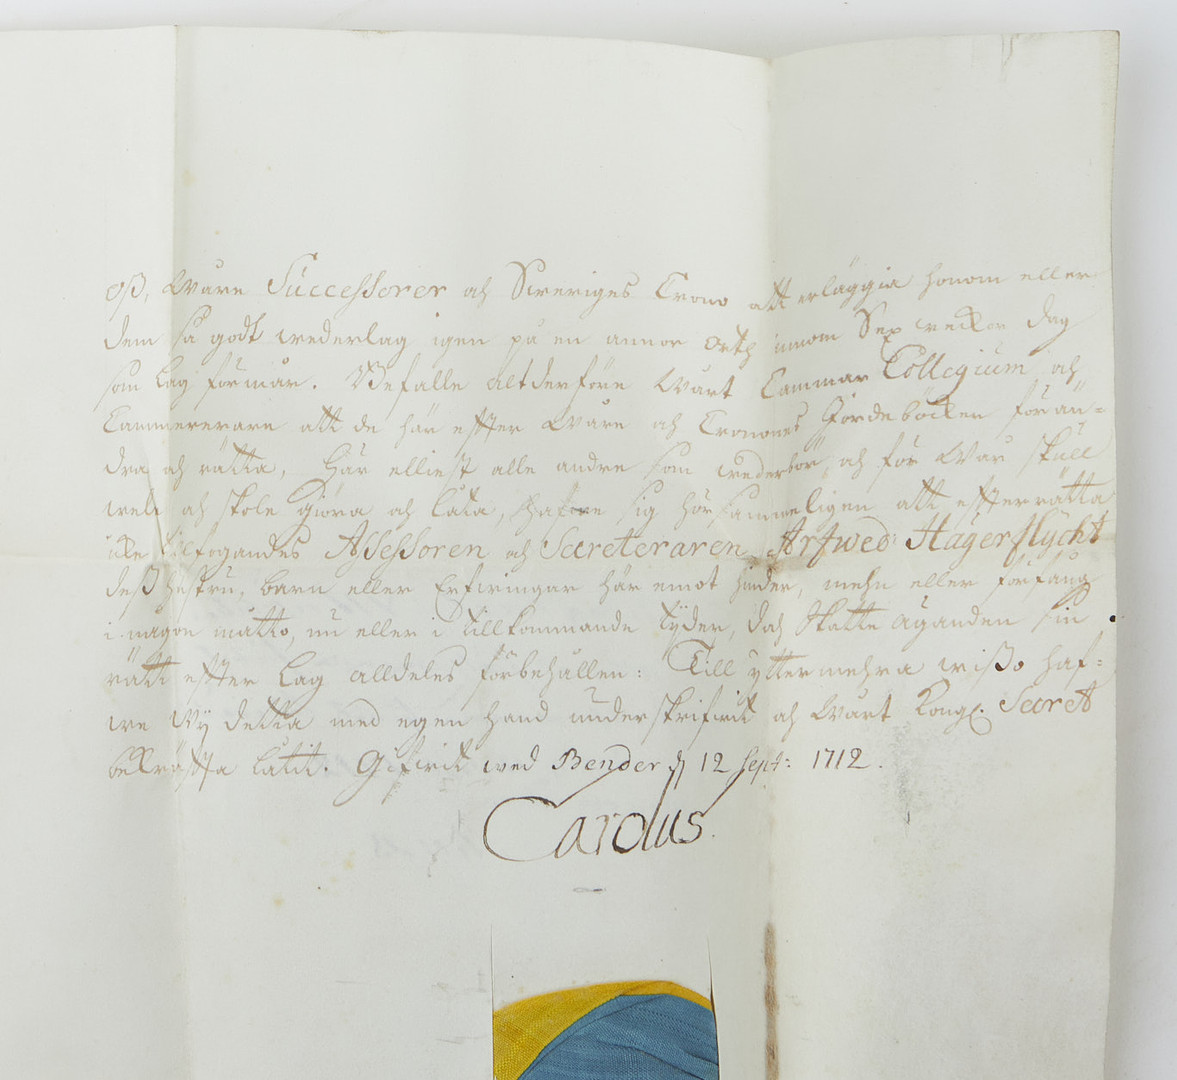 oß, Wåre Successorer och Sweriges Crono att erläggia honom eller
dem så godt wederlag igen på en annor orth innom Sex weckor dag
som Lag förmår. Befalle altderföre Wårt Cammar Collegium och
Cammererare att de här effter Wåre och Cronones Jordeböcker förän=
dra och rätta, Här elliest alle andre som wederbör, och för Wår skull
wele och skole giöra och låta, hafwe sig hörsammeligen att effterrätta
icke tilfogandes Assessoren och Secreteraren Arfwed Hägerflycht
deß hustru, barn eller Erfwingar här emot hinder, mehn eller förfång
i någon måtto, nu eller i tillkommande tijder, doch Skatte äganden sin
rätt effter Lag alldeles förbehållen: Till yttermehra wißo haf=
we Wy detta med egen hand underskrifwit och Wårt Kongl. Secret
bekräffta låtit. Gifwit wed Bender d 12 Sept: 1712.
Carolus.